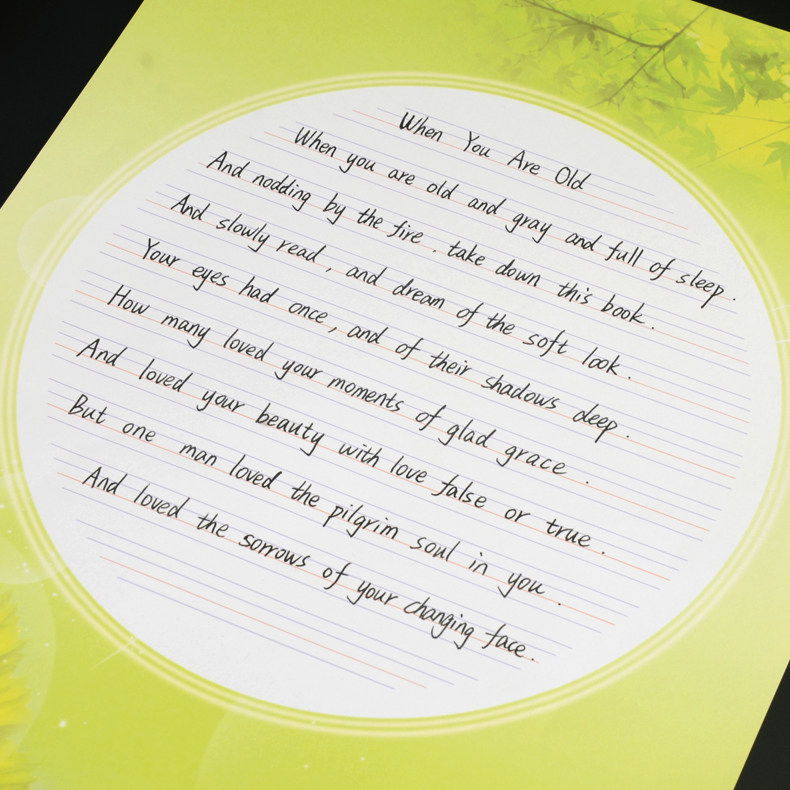 When You Are Old
When you are old and gray and full of sleep.
And nodding by the fire. take down this book.
And slowly read, and dream of the soft look.
Your eyes had once, and of their shadows deep.
How many loved your moments of glad grace.
And loved your beauty with love false or true.
But one man loved the pilgrim soul in you.
And loved the sorrows of your changing face.